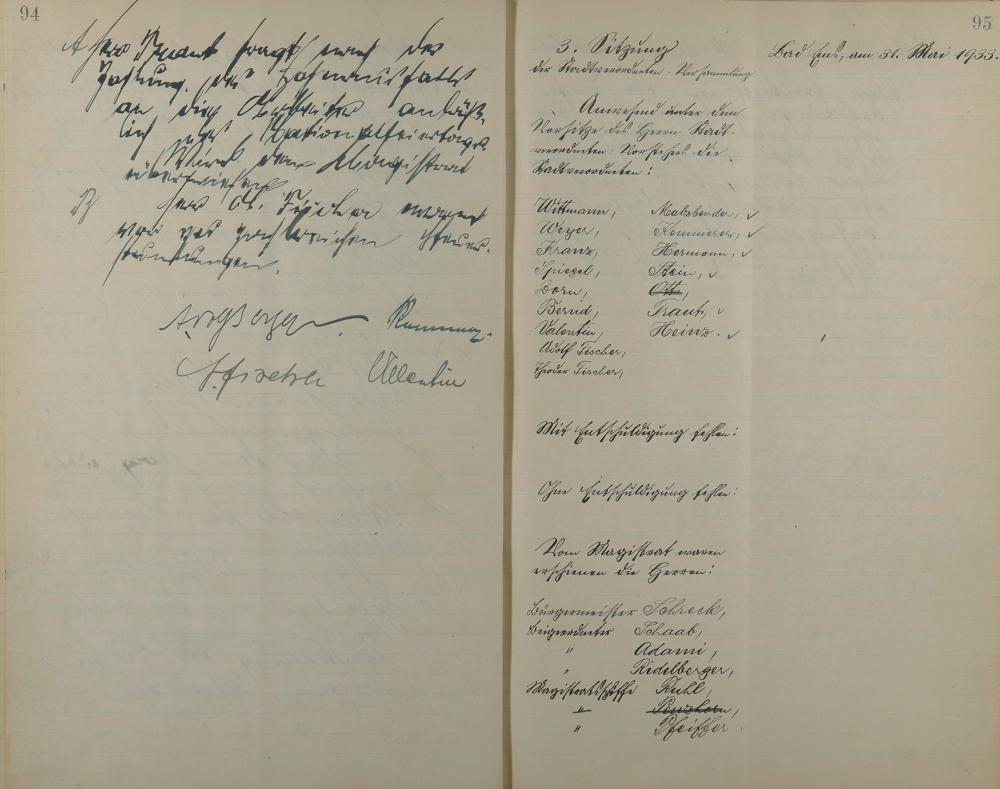 94
Herr Braun fragt nach der
Zahlung des Lohnausfalls
an die Arbeiter anläß-
lich des Nationalfeiertages
Wird dem Magistrat
überwiesen
Herr Ad. Fischer warnt
vor
steuer-
stundungen.
Valentin
95
3. Sitzung
der Stadtverordneten-Versammlung
Bad Ems, am 31. Mai 1933.
Anwesend unter dem
Vorsitze des Herrn Stadt-
verordneten-Vorstehers die
Stadtverordneten:
Wittmann, Malzbender,
Weyer, Kemmerer,
Kranz, Hermann,
Spiegel, Stein,
Dorn, Ott,
Bernd, Traut,
Valentin, Heinz.
Adolf Fischer,
Theodor Fischer,
Mit Entschuldigung fehlen:
Ohne Entschuldigung fehlen:
Vom Magistrat waren
erschienen die Herren:
Bürgermeister Schreck,
Beigeordneter Schaab,
" Adami,
" Riedelberger,
Magistratsschöffe Ruhl,
"
" Pfeiffer.